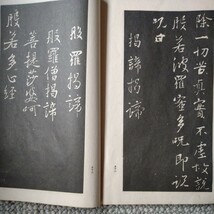 除一切苦真實不虛故說
般若波羅蜜多呪即說
呪曰
揭諦揭諦
般羅揭諦
般羅僧揭諦
菩提莎婆呵
般若多心経